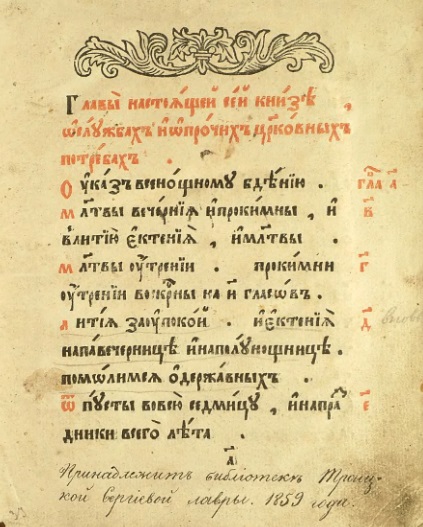 Главы̀ настоѧ́щей се́й кни́зѣ ,
ѡ҆слꙋ́жбахъ и҆ѡ҆про́чихъ цр҃ко́вныхъ
потре́бахъ .
Оу҆ка́зъ всено́щномꙋ бдѣ́нїю . гла̀ а҃
мл҃твы вече́рнїѧ и҆проки́мны , и҆ в҃
влитїю̀ є҆ктенїѧ̀ , и҆мл҃твы .
мл҃твы оу҆́трени . проки́мни г҃
оу҆́трении воскр҃ны на и҃ гласѡ́въ .
литїѧ̀ заоу҆поко́й . и҆є҆ктенїѧ̀ д҃
напавече́рницѣ и҆наполꙋ́нощницѣ .
помѡ́лимсѧ ѡ҆держа́вныхъ .
ѿпꙋсты вовсю̀ седми́цꙋ , и҆напра́ е҃
дники всегѡ̀ лѣ́та .
а҃
Принадлежитъ библіотекѣ Троиц-
кой Сергіевой лавры. 1859 года.